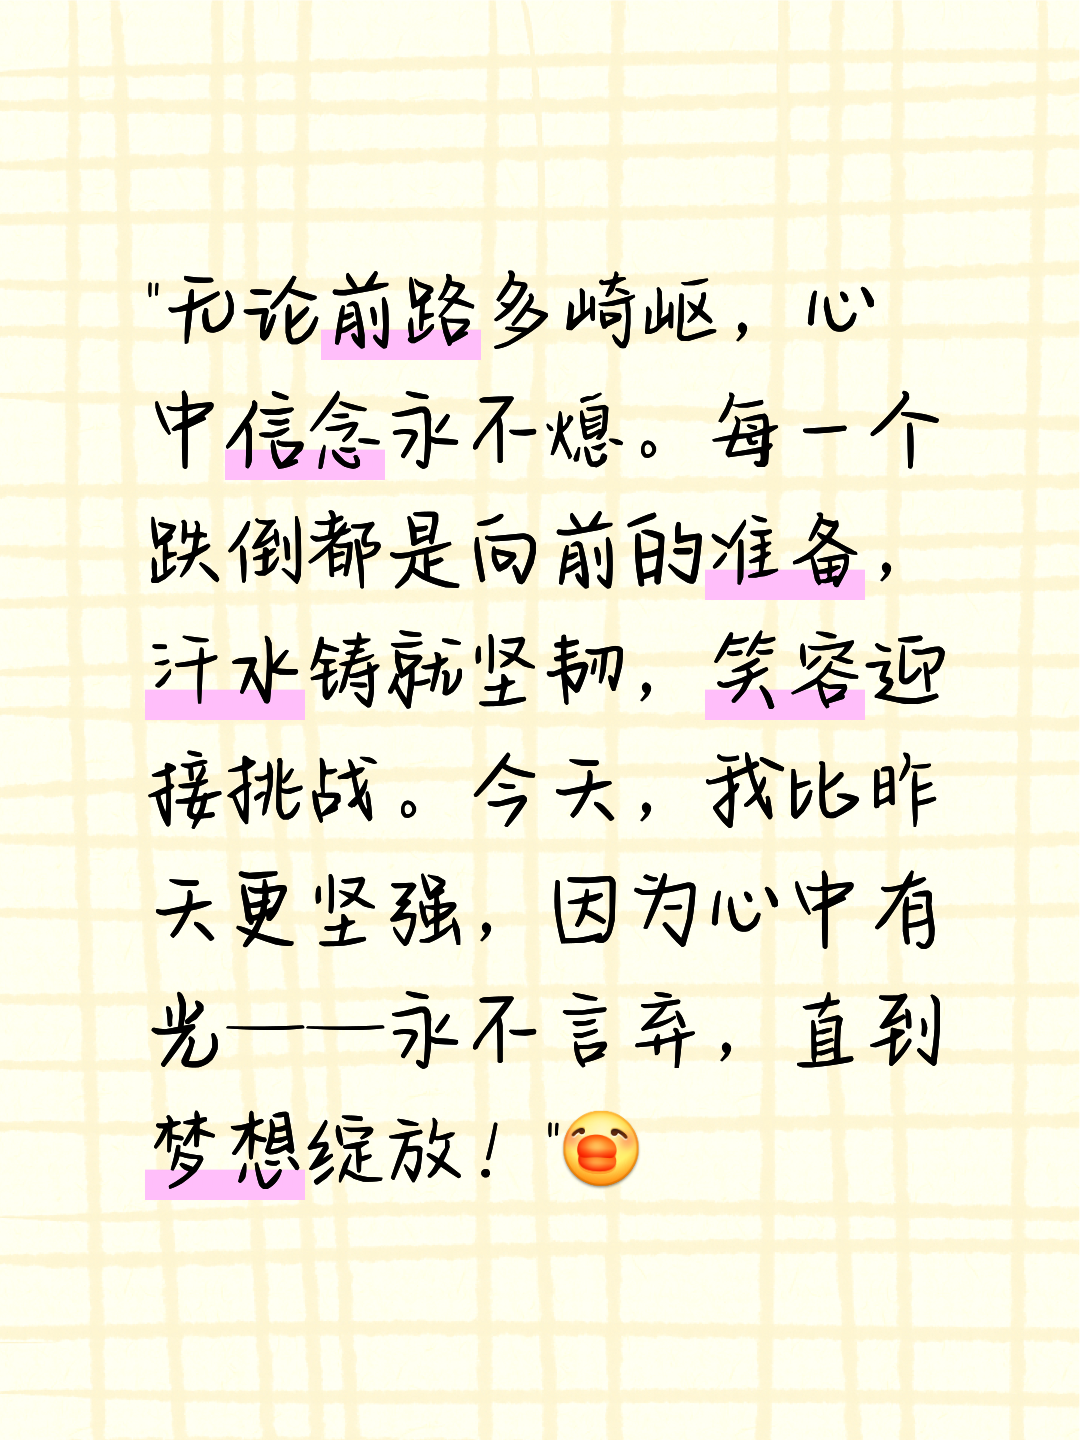 "无论前路多崎岖，心
中信念永不熄。每一个
跌倒都是向前的准备，
汗水铸就坚韧，笑容迎
接挑战。今天，我比昨
天更坚强，因为心中有
光——永不言弃，直到
梦想绽放！"